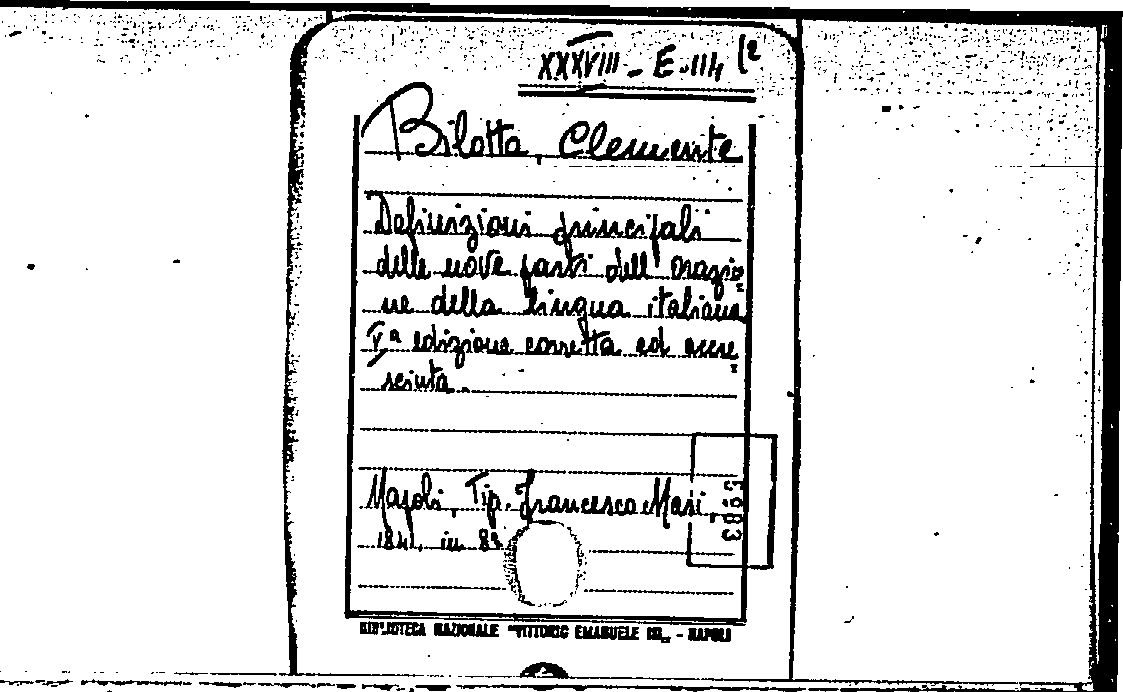 XXXVIII - E - 114 (2
Bilotta, Clemente
Definizioni principali
delle nove parti dell'orazio
ne della lingua italiana
Vª edizione corretta ed accre
sciuta.
Napoli, Tip. Francesco Masi,
1841. in 8º
BIBLIOTECA NAZIONALE "VITTORIO EMANUELE III" - NAPOLI